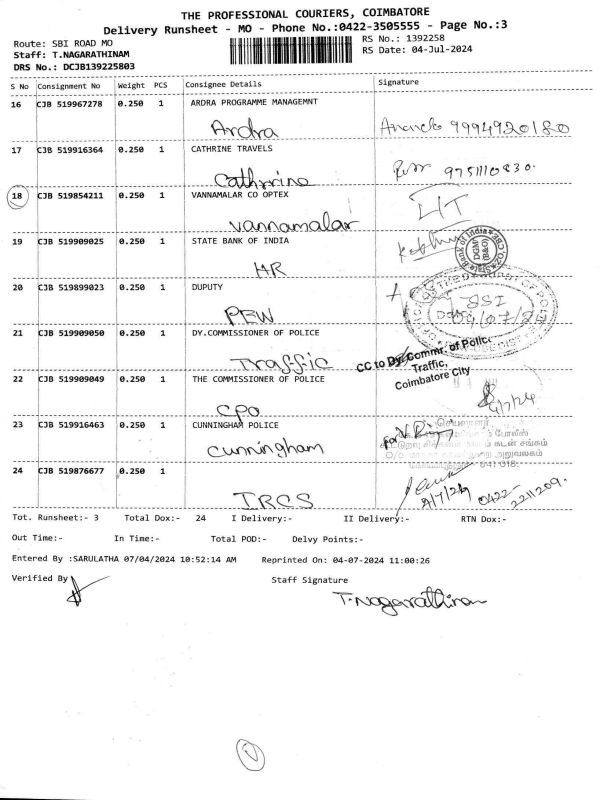 THE PROFESSIONAL COURIERS, COIMBATORE
Delivery Runsheet - MO - Phone No.:0422-3505555 - Page No.:3
Route: SBI ROAD MO
RS No.: 1392258
Staff: T.NAGARATHINAM
RS Date: 04-Jul-2024
DRS No.: DCJB139225803
S No Consignment No Weight PCS Consignee Details Signature
16 CJB 519967278 0.250 1 ARDRA PROGRAMME MANAGEMNT
Ardra 9994920180
17 CJB 519916364 0.250 1 CATHRINE TRAVELS
Cathrine
18 CJB 519854211 0.250 1 VANNAMALAR CO OPTEX
Vannamalar
19 CJB 519909025 0.250 1 STATE BANK OF INDIA
HR
State Bank of India
DGM (B&O)
20 CJB 519899023 0.250 1 DUPUTY
PEW
SSI
21 CJB 519909050 0.250 1 DY.COMMISSIONER OF POLICE
Traffic
CC to Dy. Commr. of Police
Traffic,
Coimbatore City
22 CJB 519909049 0.250 1 THE COMMISSIONER OF POLICE
CPO
4/7/24
23 CJB 519916463 0.250 1 CUNNINGHAM POLICE
Cunningham
செயலாளர்
போலீஸ்
கடன் சங்கம்
அலுவலகம்
24 CJB 519876677 0.250 1
IRCS
4/7/24 0422-2211209.
Tot. Runsheet:- 3 Total Dox:- 24 I Delivery:- II Delivery:- RTN Dox:-
Out Time:- In Time:- Total POD:- Delvy Points:-
Entered By :SARULATHA 07/04/2024 10:52:14 AM Reprinted On: 04-07-2024 11:00:26
Verified By
Staff Signature
T.Nagarathinam